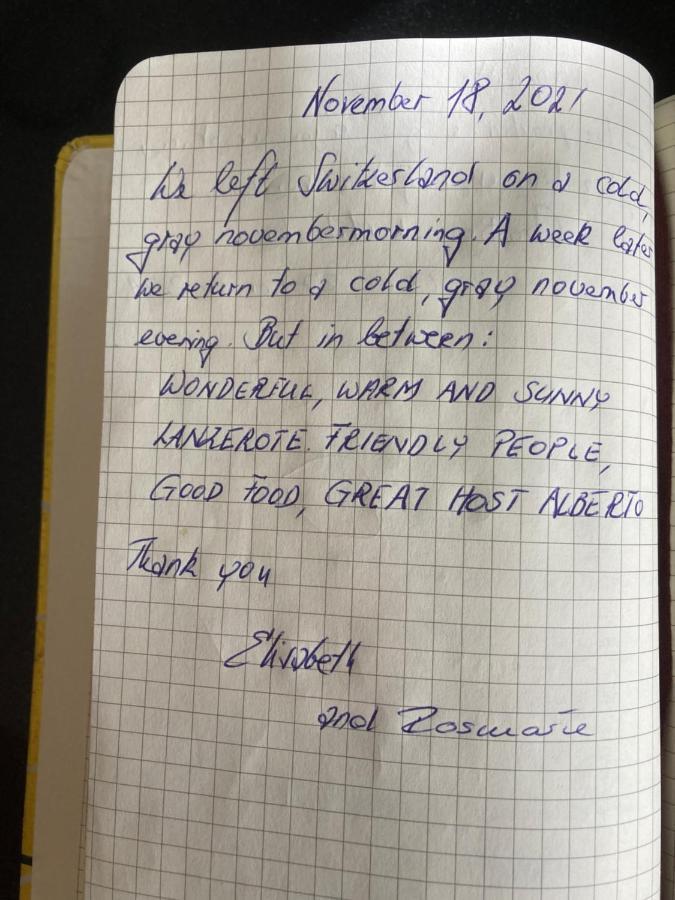 November 18, 2021
We left Switzerland on a cold,
gray novembermorning. A week later
we return to a cold, gray november
evening. But in between:
WONDERFUL, WARM AND SUNNY
LANZEROTE. FRIENDLY PEOPLE,
GOOD FOOD, GREAT HOST ALBERTO
Thank you
Elisabeth
and Rosmarie